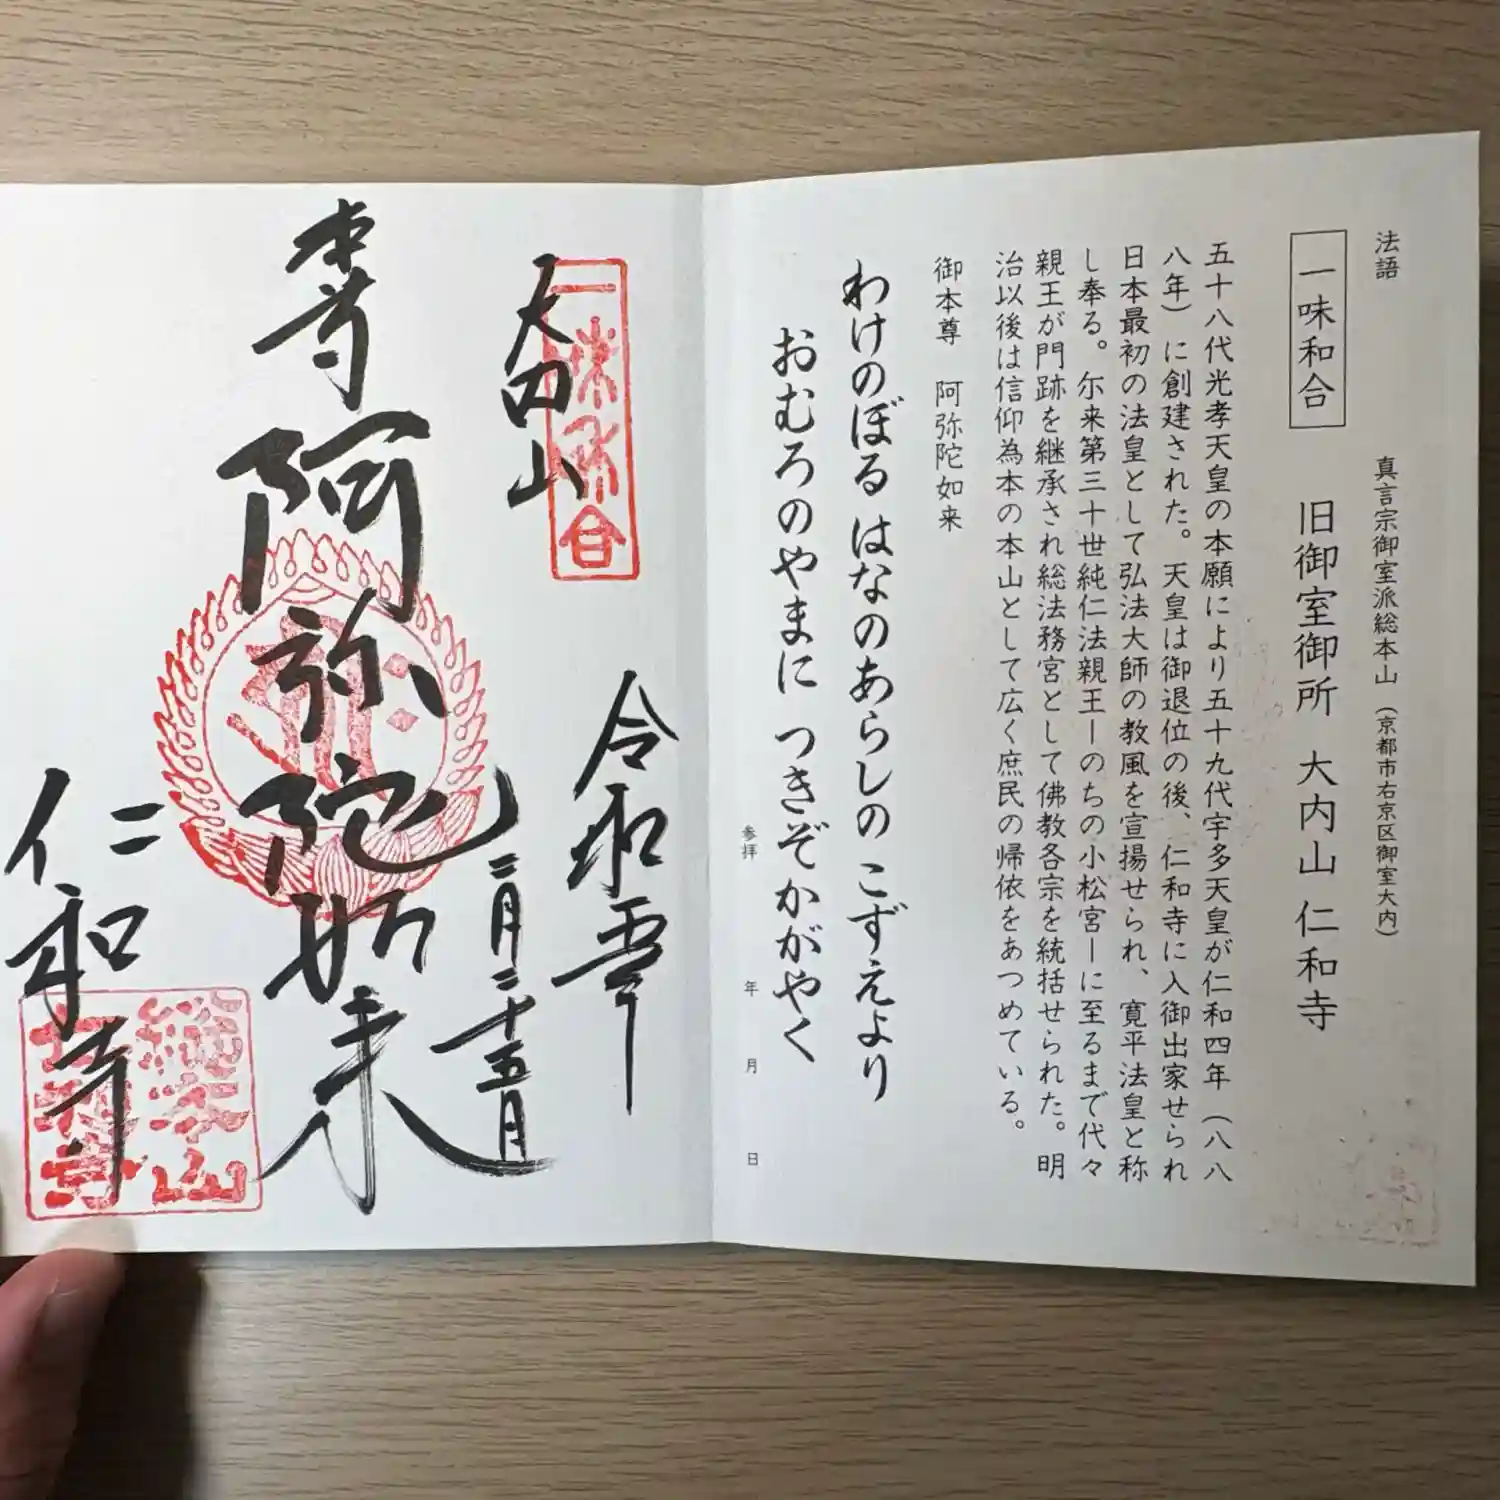 法語
真言宗御室派総本山（京都市右京区御室大内）
一味和合
旧御室御所 大内山 仁和寺
五十八代光孝天皇の本願により五十九代宇多天皇が仁和四年（八八
八年）に創建された。天皇は御退位の後、仁和寺に入御出家せられ
日本最初の法皇として弘法大師の教風を宣揚せられ、寛平法皇と称
し奉る。尓来第三十世純仁法親王ーのちの小松宮ーに至るまで代々
親王が門跡を継承され総法務宮として佛教各宗を統括せられた。明
治以後は信仰為本の本山として広く庶民の帰依をあつめている。
御本尊 阿弥陀如来
わけのぼる はなのあらしの こずえより
おむろのやまに つきぞかがやく
参拝 年 月 日
令和
二月二十五日
一味和合
大内山
本尊 阿弥陀如来
仁和寺
総本山
仁和寺